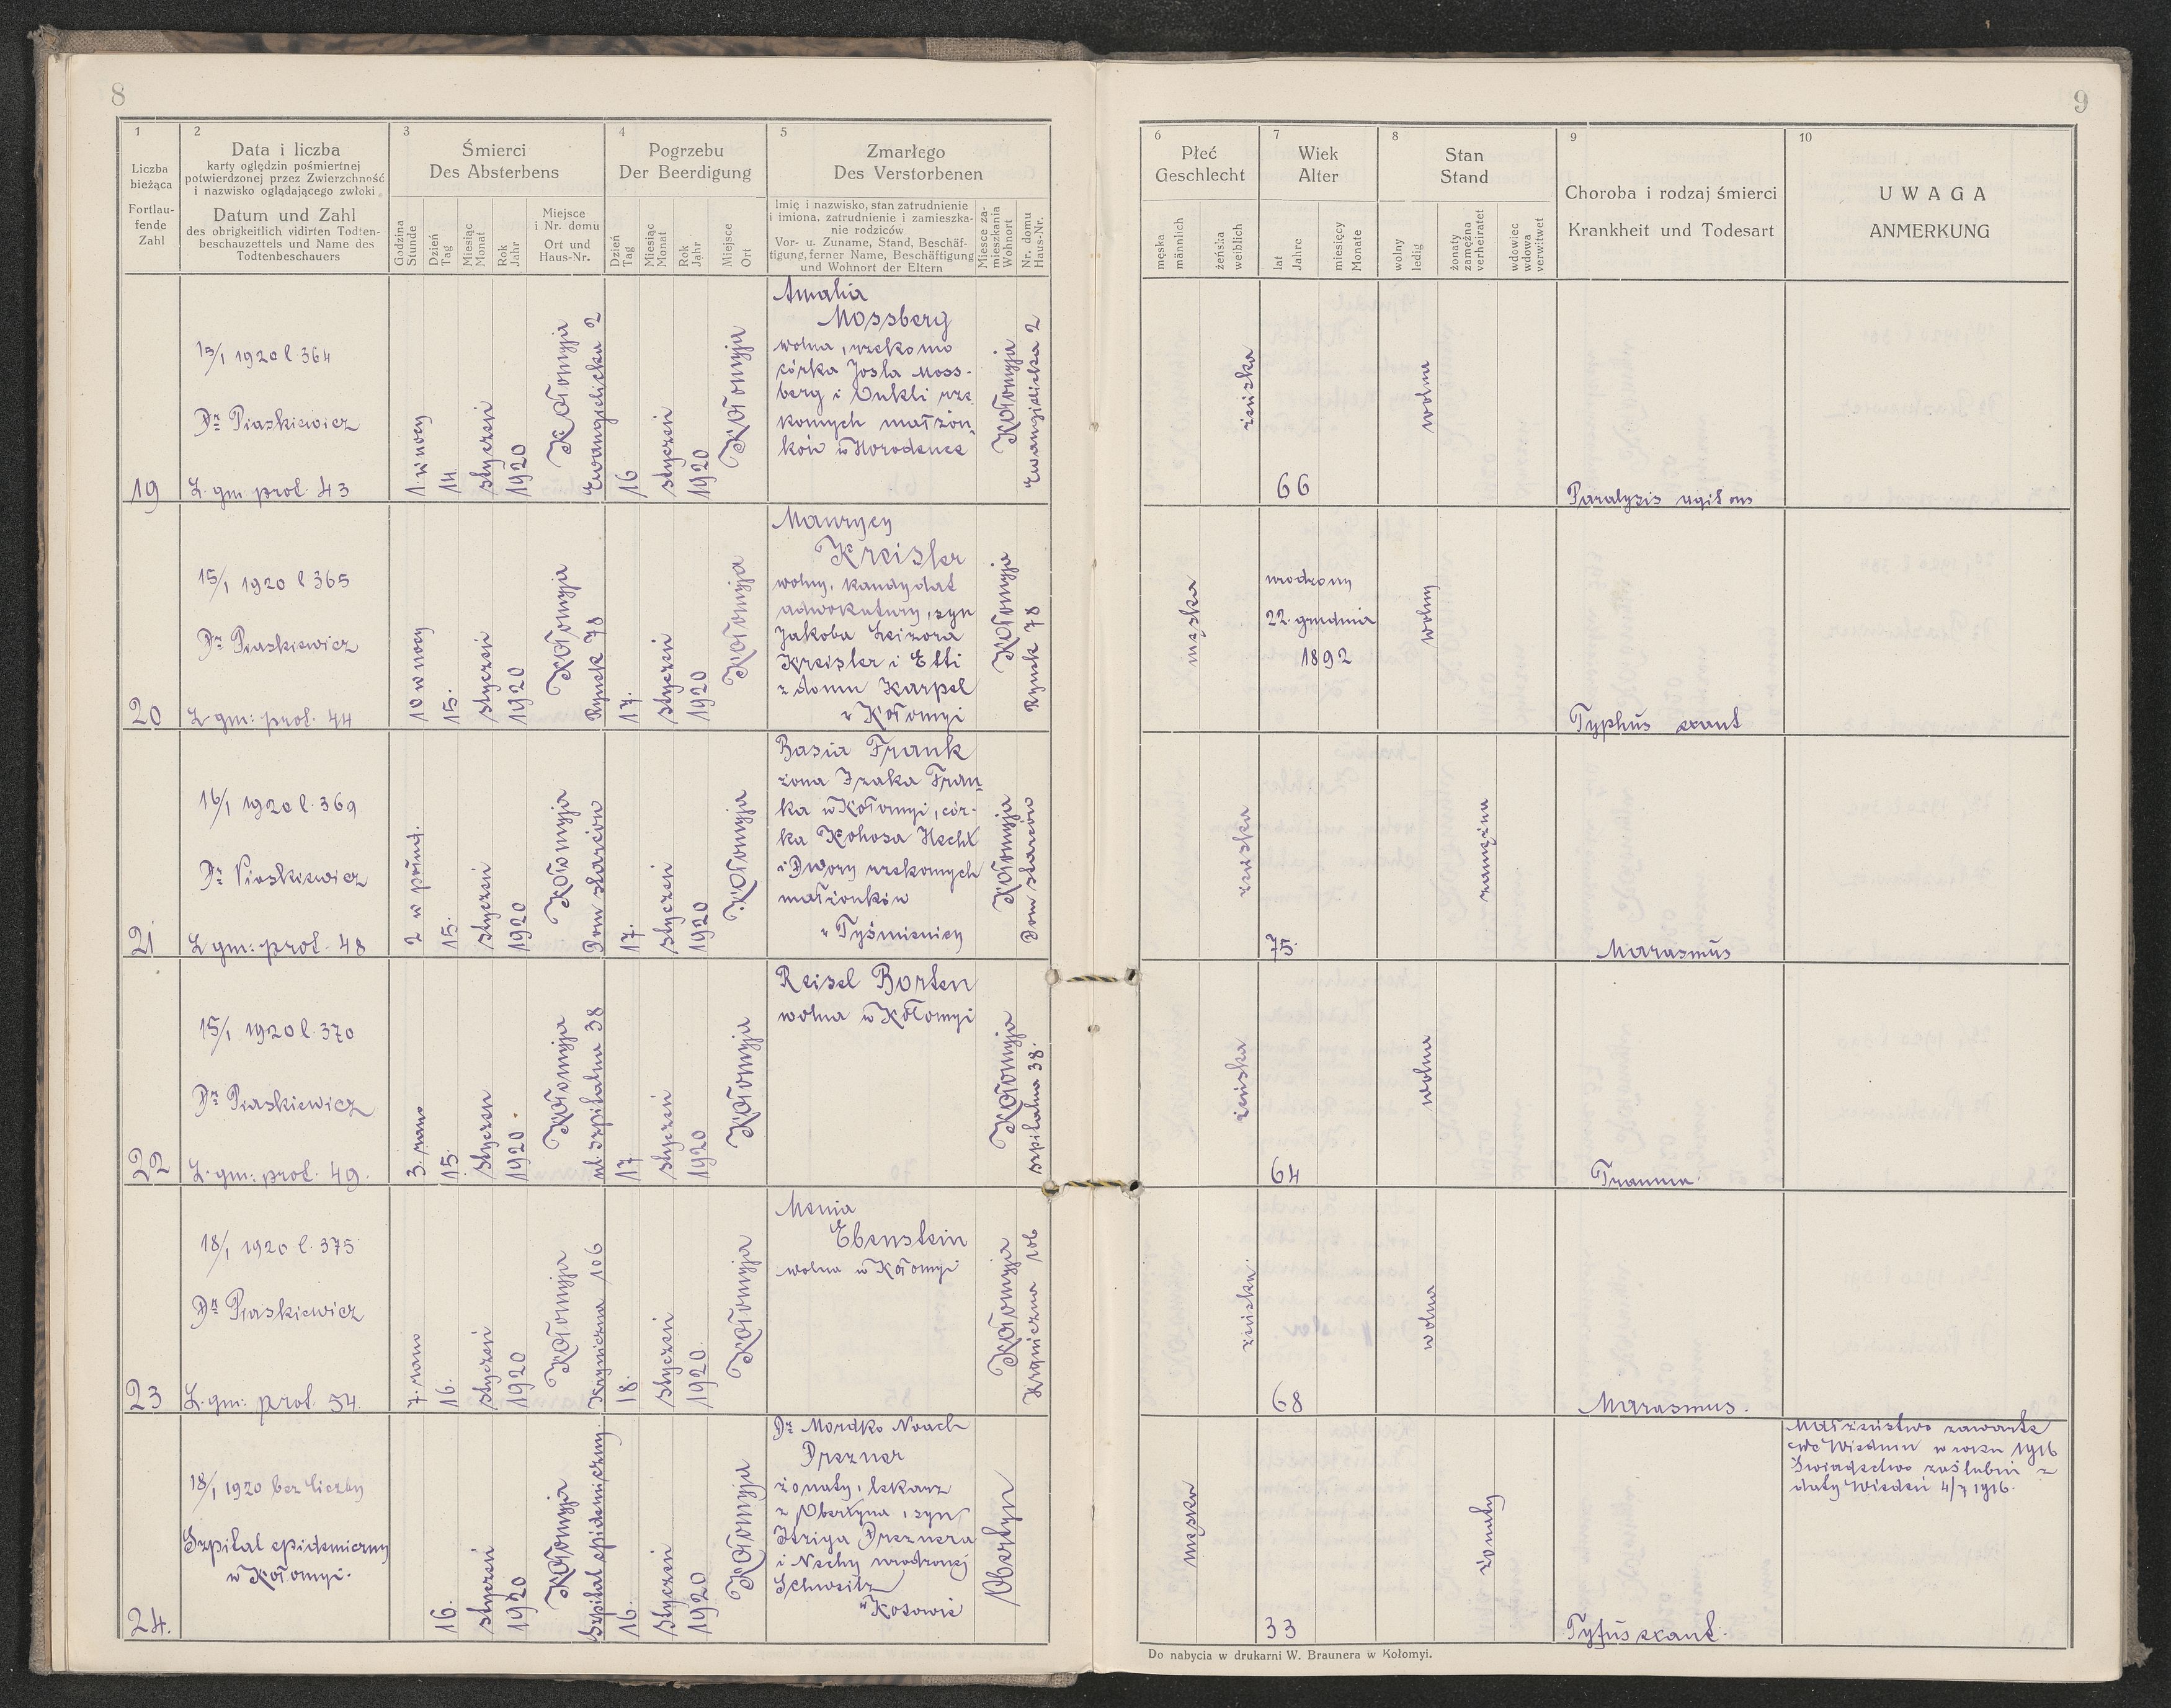 8
1
Liczba
bieżąca
Fortlau-
fende
Zahl
2
Data i liczba
karty oględzin pośmiertnej
potwierdzonej przez Zwierzchność
i nazwisko oglądającego zwłoki
Datum und Zahl
des obrigkeitlich vidirten Todten-
beschauzettels und Name des
Todtenbeschauers
3
Śmierci
Des Absterbens
Godzina
Stunde
Dzień
Tag
Miesiąc
Monat
Rok
Jahr
Miejsce
i Nr. domu
Ort und
Haus-Nr.
4
Pogrzebu
Der Beerdigung
Dzień
Tag
Miesiąc
Monat
Rok
Jahr
Miejsce
Ort
5
Zmarłego
Des Verstorbenen
Imię i nazwisko, stan zatrudnienie
i imiona, zatrudnienie i zamieszka-
nie rodziców
Vor- u. Zuname, Stand, Beschäf-
tigung, ferner Name, Beschäftigung
und Wohnort der Eltern
Miesce za-
mieszkania
Wohnort
Nr. domu
Haus-Nr.
19
15/1 1920 l 364
Dr Piaskiewicz
L. gm prot. 43
1. w nocy
14.
styczeń
1920
Kołomyja
Ewangielicka 2
16
styczeń
1920
Kołomyja
Amalia
Mossberg
wolna, rzekomo
córka Josla Moss-
berg i Unkli rze-
komych małżon-
ków w Horodence
Kołomyja
Ewangielicka 2
20
15/1 1920 l 365
Dr Piaskiewicz
L. gm: prot. 44
10 w nocy
15.
styczeń
1920
Kołomyja
Rynek 78
17.
styczeń
1920
Kołomyja
Maurycy
Kreisler
wolny, kandydat
adwokatury, syn
Jakoba Leizora
Kreisler i Etti
z domu Karpel
w Kołomyi
Kołomyja
Rynek 78
21
16/1 1920 l. 369
Dr Piaskiewicz
L gm: prot. 48
2 w połud.
15.
styczeń
1920
Kołomyja
Dom starców
17.
styczeń
1920
Kołomyja
Basia Frank
żona Izaka Fran-
ka w Kołomyi, cór-
ka Kohosa Hecht
i Dwory rzekomych
małżonków
w Tyśmienicy
Kołomyja
Dom starców
22
15/1 1920 l. 370
Dr Piaskiewicz
L. gm: prot. 49.
3. rano
15.
styczeń
1920
Kołomyja
ul. szpitalna 38
17
styczeń
1920
Kołomyja
Reisel Borten
wolna w Kołomyi
Kołomyja
szpitalna 38.
23
18/1 1920 l. 375
Dr Piaskiewicz
L. gm: prot. 54
7. rano
16.
styczeń
1920
Kołomyja
Krzyniczna 106
18.
styczeń
1920.
Kołomyja
Menia
Ebenstein
wolna w Kołomyi
Kołomyja
106
24.
18/1 1920 bez liczby
Szpital epidemiczny
w Kołomyi.
16.
styczeń
1920
Kołomyja
Szpital epidemiczny.
16.
styczeń
1920
Kołomyja
Dr Mordko Noach
Drezner
żonaty, lekarz
z Obertyna, syn
Dreznera
i Nechy urodzonej
Schweitz
w Kosowie
Obertyn
9
6
Płeć
Geschlecht
męska
männlich
żeńska
weiblich
7
Wiek
Alter
lat
Jahre
miesięcy
Monate
8
Stan
Stand
wolny
ledig
żonaty
zamężna
verheiratet
wdowiec
wdowa
verwitwet
9
Choroba i rodzaj śmierci
Krankheit und Todesart
10
UWAGA
ANMERKUNG
żeńska
66
wolna
Paralysis agitans
męska
urodzony
22. grudnia
1892
wolny
Typhus exant
żeńska
75.
zamężna
Marasmus
żeńska
64
wolna
Trauma.
żeńska
68
wolna
Marasmus.
męska
33
żonaty
Tyfus exant.
Małżeństwo zawarte
we Wiedniu w roku 1916
Świadectwo zaślubin z
daty Wiedeń 4/7 1916.
Do nabycia w drukarni W. Braunera w Kołomyi.